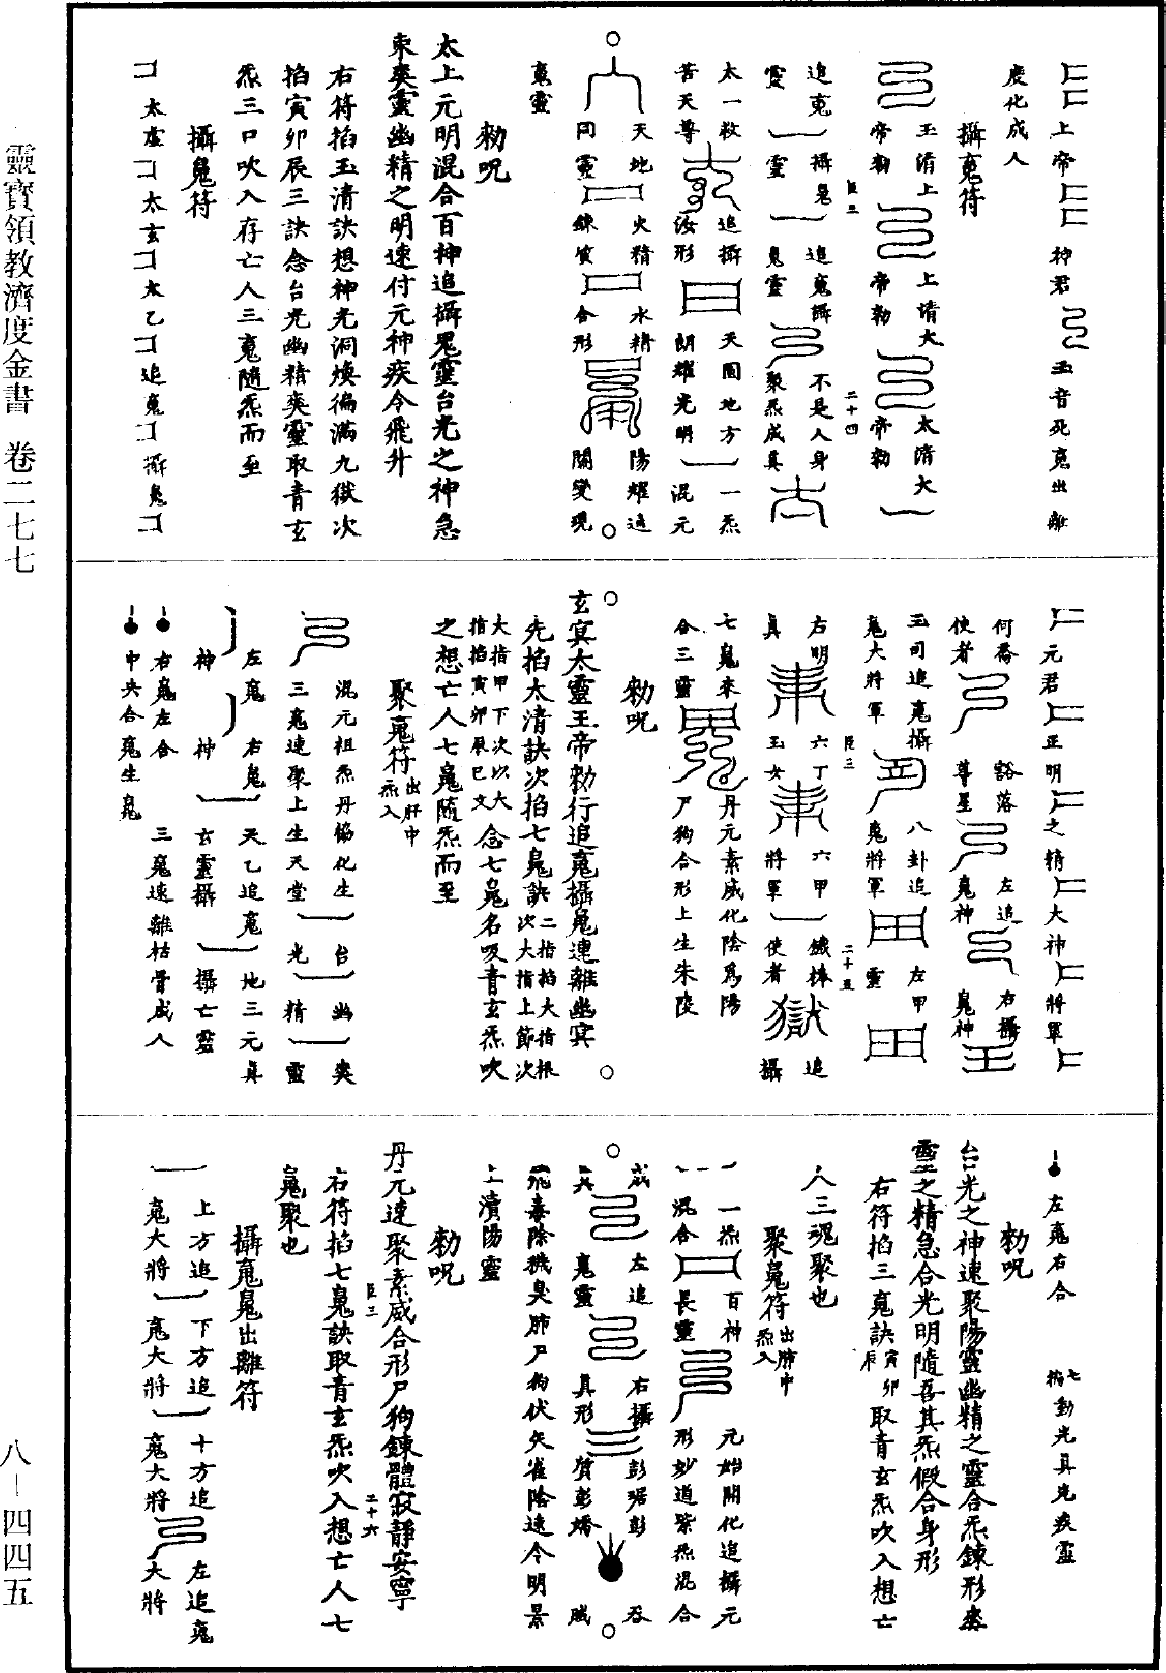 上帝神君玉音死䰟出離
度化成人
攝䰟符
玉清上上清大太清大
帝勑帝勑帝勑
臣三 二十四
追䰟攝鬽追䰟攝不是人身
靈靈鬽靈聚炁成真
太一救追攝天圓地方一炁
苦天尊汝形朗耀光明混元
天地火精水精陽耀追
同靈鍊質合形關變現
䰟靈
勑呪
太上元明混合百神追攝鬽靈台光之神急
束爽靈幽精之明速付元神疾令飛升
右符掐玉清訣想神光洞煥徧滿九獄次
掐寅卯辰三訣念台光幽精爽靈取青玄
炁三口吹入存亡人三䰟隨炁而至
攝鬽符
太虛太玄太乙追䰟攝鬽
元君正明之精大神將軍
何喬豁落左追右攝
使者尊星䰟神鬽神
玉司追䰟攝八卦追左甲
䰟大將軍䰟將軍靈
臣三 二十五
右明六丁六甲鐵棒追
真玉女將軍使者獄攝
七鬽來丹元素威化陰爲陽
合三靈尸狗合形上生朱陵
勑呪
玄冥太靈王帝勑行追䰟攝鬽速離幽冥
先掐太清訣次掐七鬽訣二指掐大指根次大指上節次
大指甲下次以大指掐寅卯辰巳文念七鬽名吸青玄炁吹
之想亡人七鬽隨炁而至
聚䰟符出肝中炁入
混元祖炁丹協化生台幽爽
三䰟速聚上生天堂光精靈
左䰟右鬽天乙追䰟地三元真
神神玄靈攝攝亡靈
右鬽左合三䰟速離枯骨成人
中央合䰟生鬽
左䰟右合七掐動光真光疾靈
勑呪
台光之神速聚陽靈幽精之靈合炁鍊形爽
靈之精急合光明隨吾其炁假合身形
右符掐三䰟訣寅卯辰取青玄炁吹入想亡
人三魂聚也
聚鬽符出肺中炁入
一炁百神元始開化追攝元
混合長靈形妙道紫炁混合
成左追右攝彭琚彭吞
真䰟靈真形質彭蟜賊
飛毒除穢臭肺尸狗伏矢雀陰速令明景
上瀆陽靈
勑呪
丹元速聚素威合形尸狗鍊體寂靜安寧
右符掐七鬽訣取青玄炁吹入想亡人七
臣三 二十六
鬽聚也
攝䰟鬽出離符
上方追下方追十方追左追䰟
䰟大將䰟大將䰟大將大將
靈寶領教濟度金書 卷二七七
八-四四五